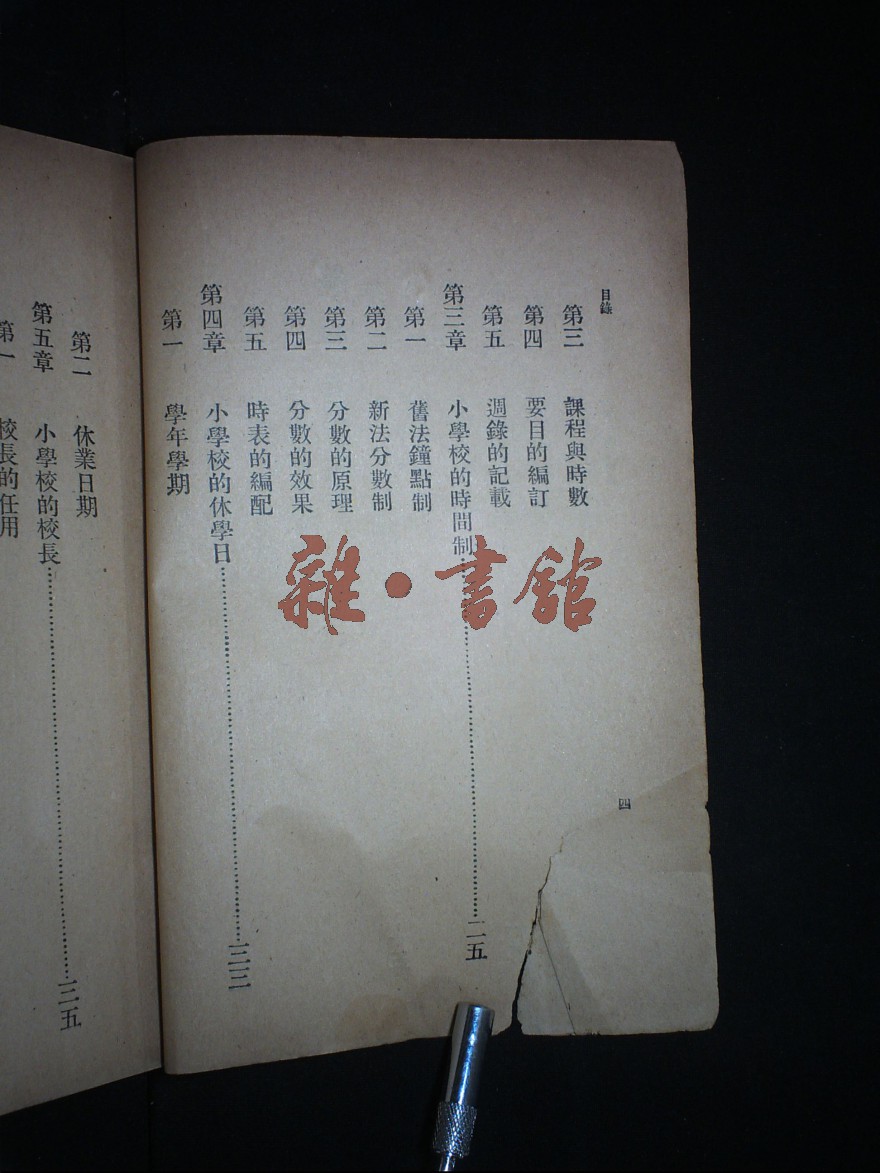 目錄
第三　課程與時數
第四　要目的編訂
第五　週錄的記載
第三章　小學校的時間制…………二五
第一　舊法鐘點制
第二　新法分數制
第三　分數的原理
第四　分數的效果
第五　時表的編配
第四章　小學校的休學日…………三三
第一　學年學期
四
第二　休業日期
第五章　小學校的校長…………三五
第一　校長的任用
雜·書館